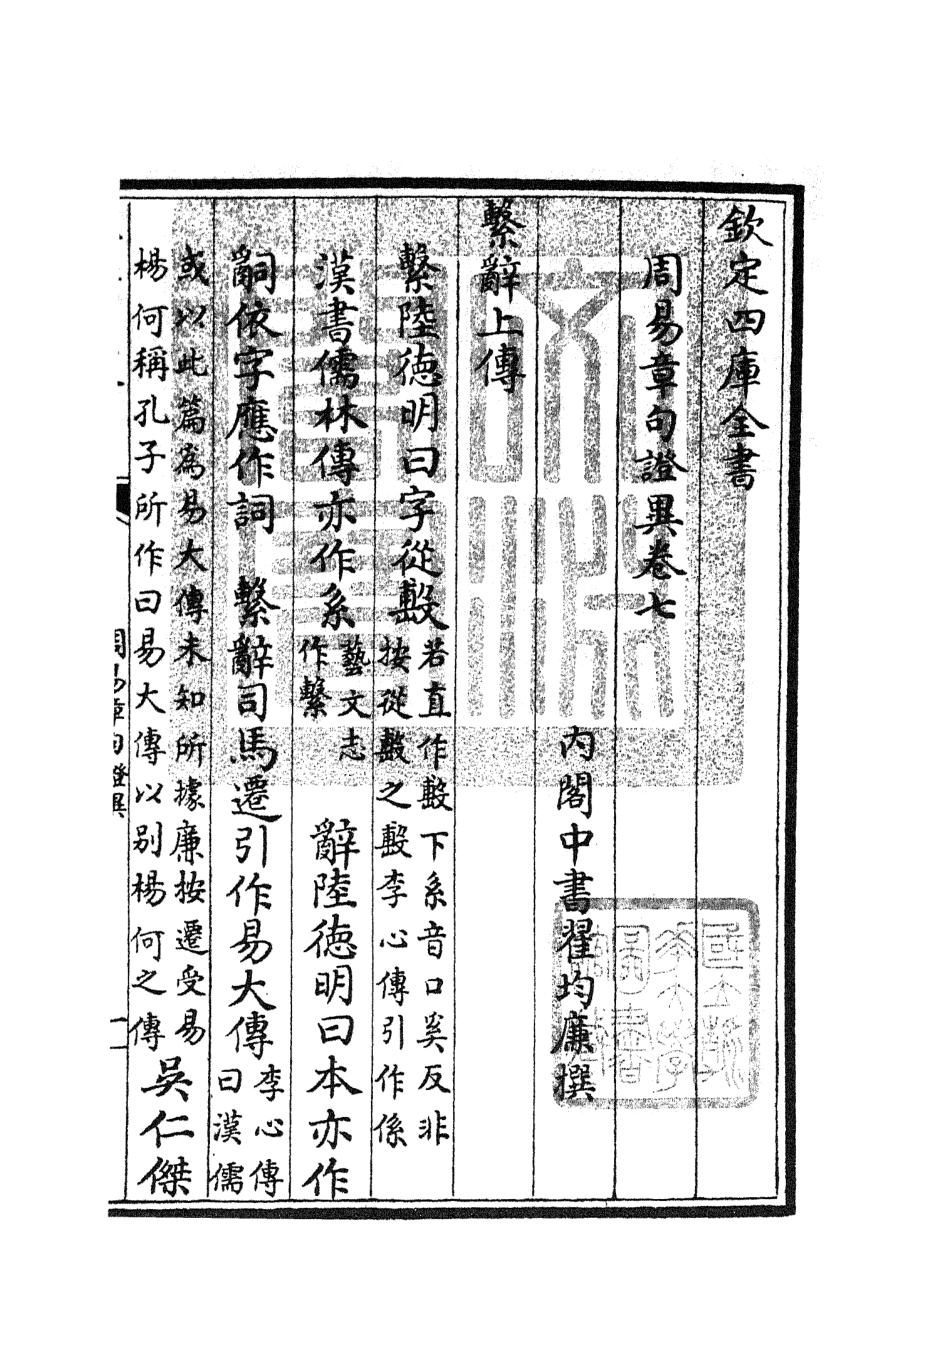 欽定四庫全書
周易章句證異卷七
內閣中書翟均廉撰
繫辭上傳
繫陸德明曰字從毄若直作毄下系音口奚反非按從毄之毄李心傳引作係
漢書儒林傳亦作系藝文志作繫 辭陸德明曰本亦作
𤔲依字應作詞 繫辭司馬遷引作易大傳李心傳曰漢儒
或以此篇為易大傳未知所據廉按遷受易楊何稱孔子所作曰易大傳以别楊何之傳吳仁傑
周易章句證異